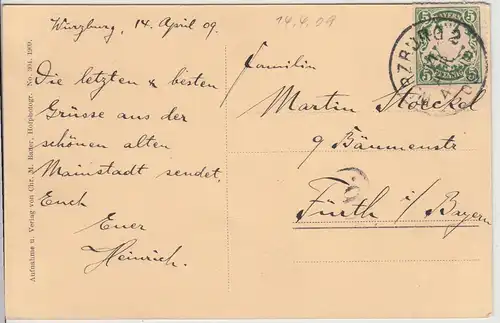 Würzburg, 14. April 09.
Die letzten & besten
Grüsse aus der
schönen alten
Mainstadt sendet
Euch
Euer
Heinrich.
14.4.09
Familie
Martin Stöckel
9 Bäumenstr
Fürth i/Bayern
BAYERN
5 5
5 5
PFENNIG
Aufnahme u. Verlag von Chr. M. Hofphotogr. No. 1909.